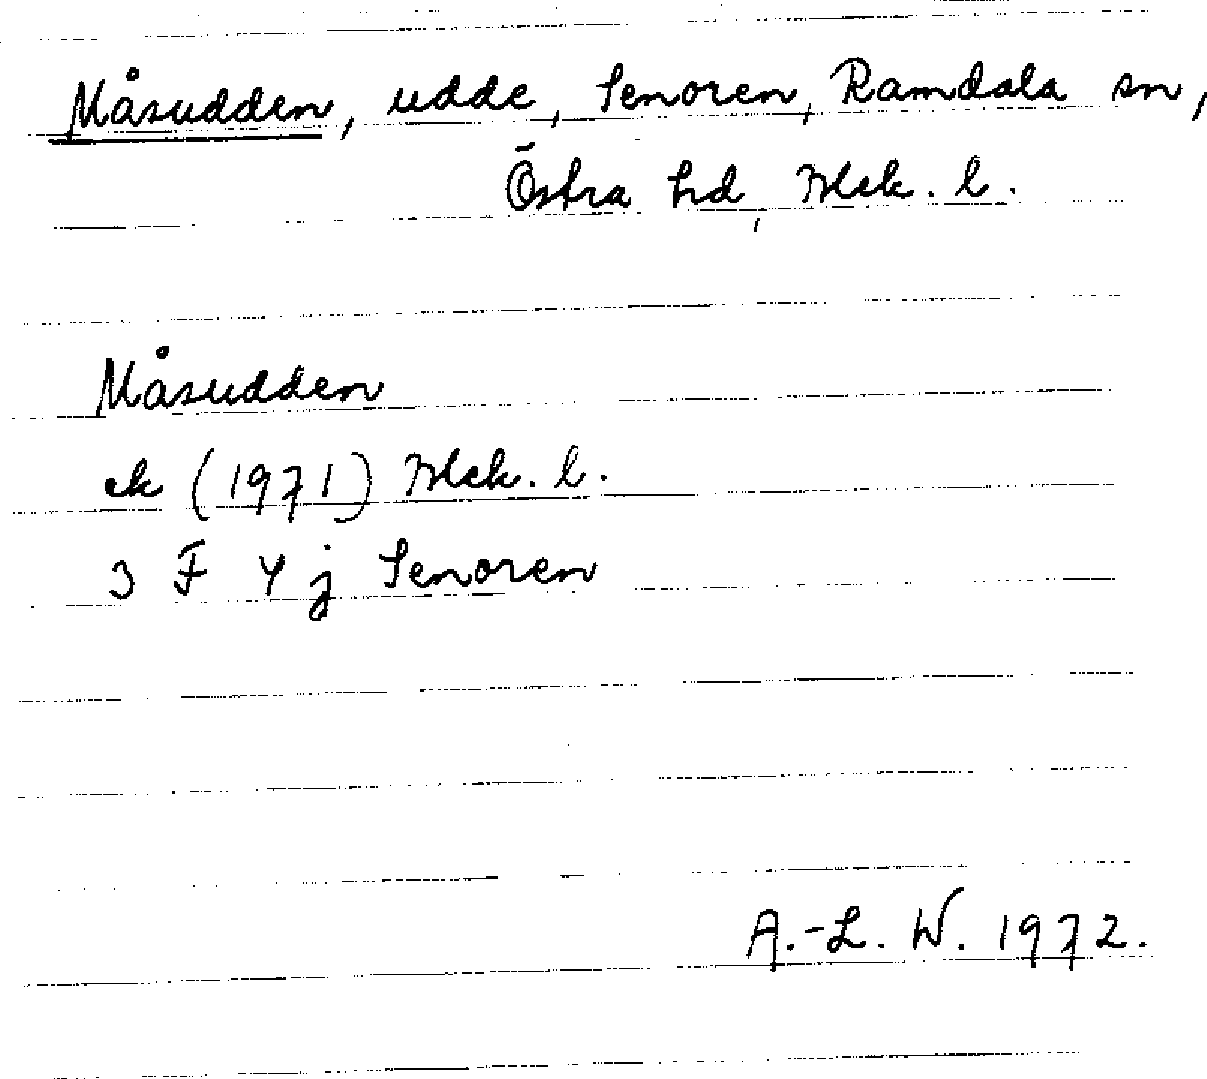 Måsudden, udde, Senoren, Ramdala sn,
Östra hd, Blek. l.
Måsudden
ek (1971) Blek. l.
3 F 4 j Senoren
A.-L. W. 1972.